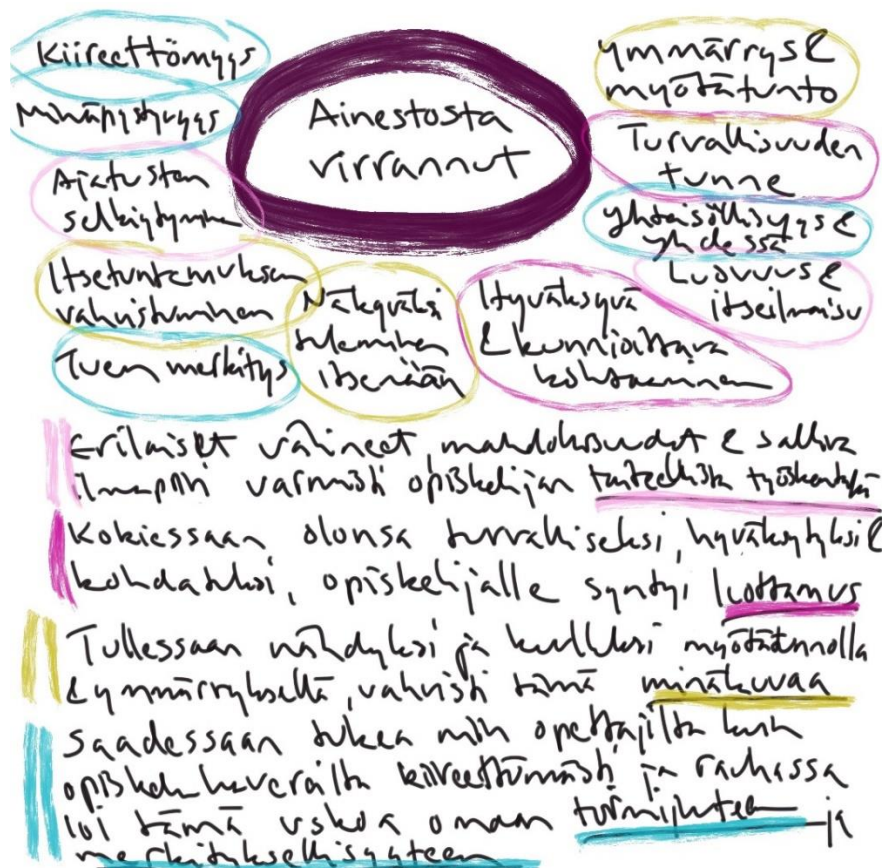 Kiireettömyys
Minäpystyvyys
Ajatusten
selkiytyminen
Itsetuntemuksen
vahvistuminen
Tuen merkitys
Ainestosta
virrannut
Näkyväksi
tuleminen
itsenään
Hyväksyvä
& kunnioittava
kohtaaminen
ymmärrys &
myötätunto
Turvallisuuden
tunne
yhteisöllisyys &
yhdessä
Luovuus &
itseilmaisu
Erilaiset välineet, mahdollisuudet & salliva
ilmapiiri varmisti opiskelijan taiteellista työskentelyä
Kokiessaan olonsa turvalliseksi, hyväksytyksi &
kohdatuksi, opiskelijalle syntyi luottamus
Tullessaan nähdyksi ja kulluksi myötätunnolla
& ymmärryksellä, vahvisti tämä minäkuvaa
Saadessaan tukea niin opettajilta kuin
opiskelukavereilta kiireettömästi ja rauhassa
loi tämä uskoa omaan toimijuuteen ja
merkityksellisyyteen